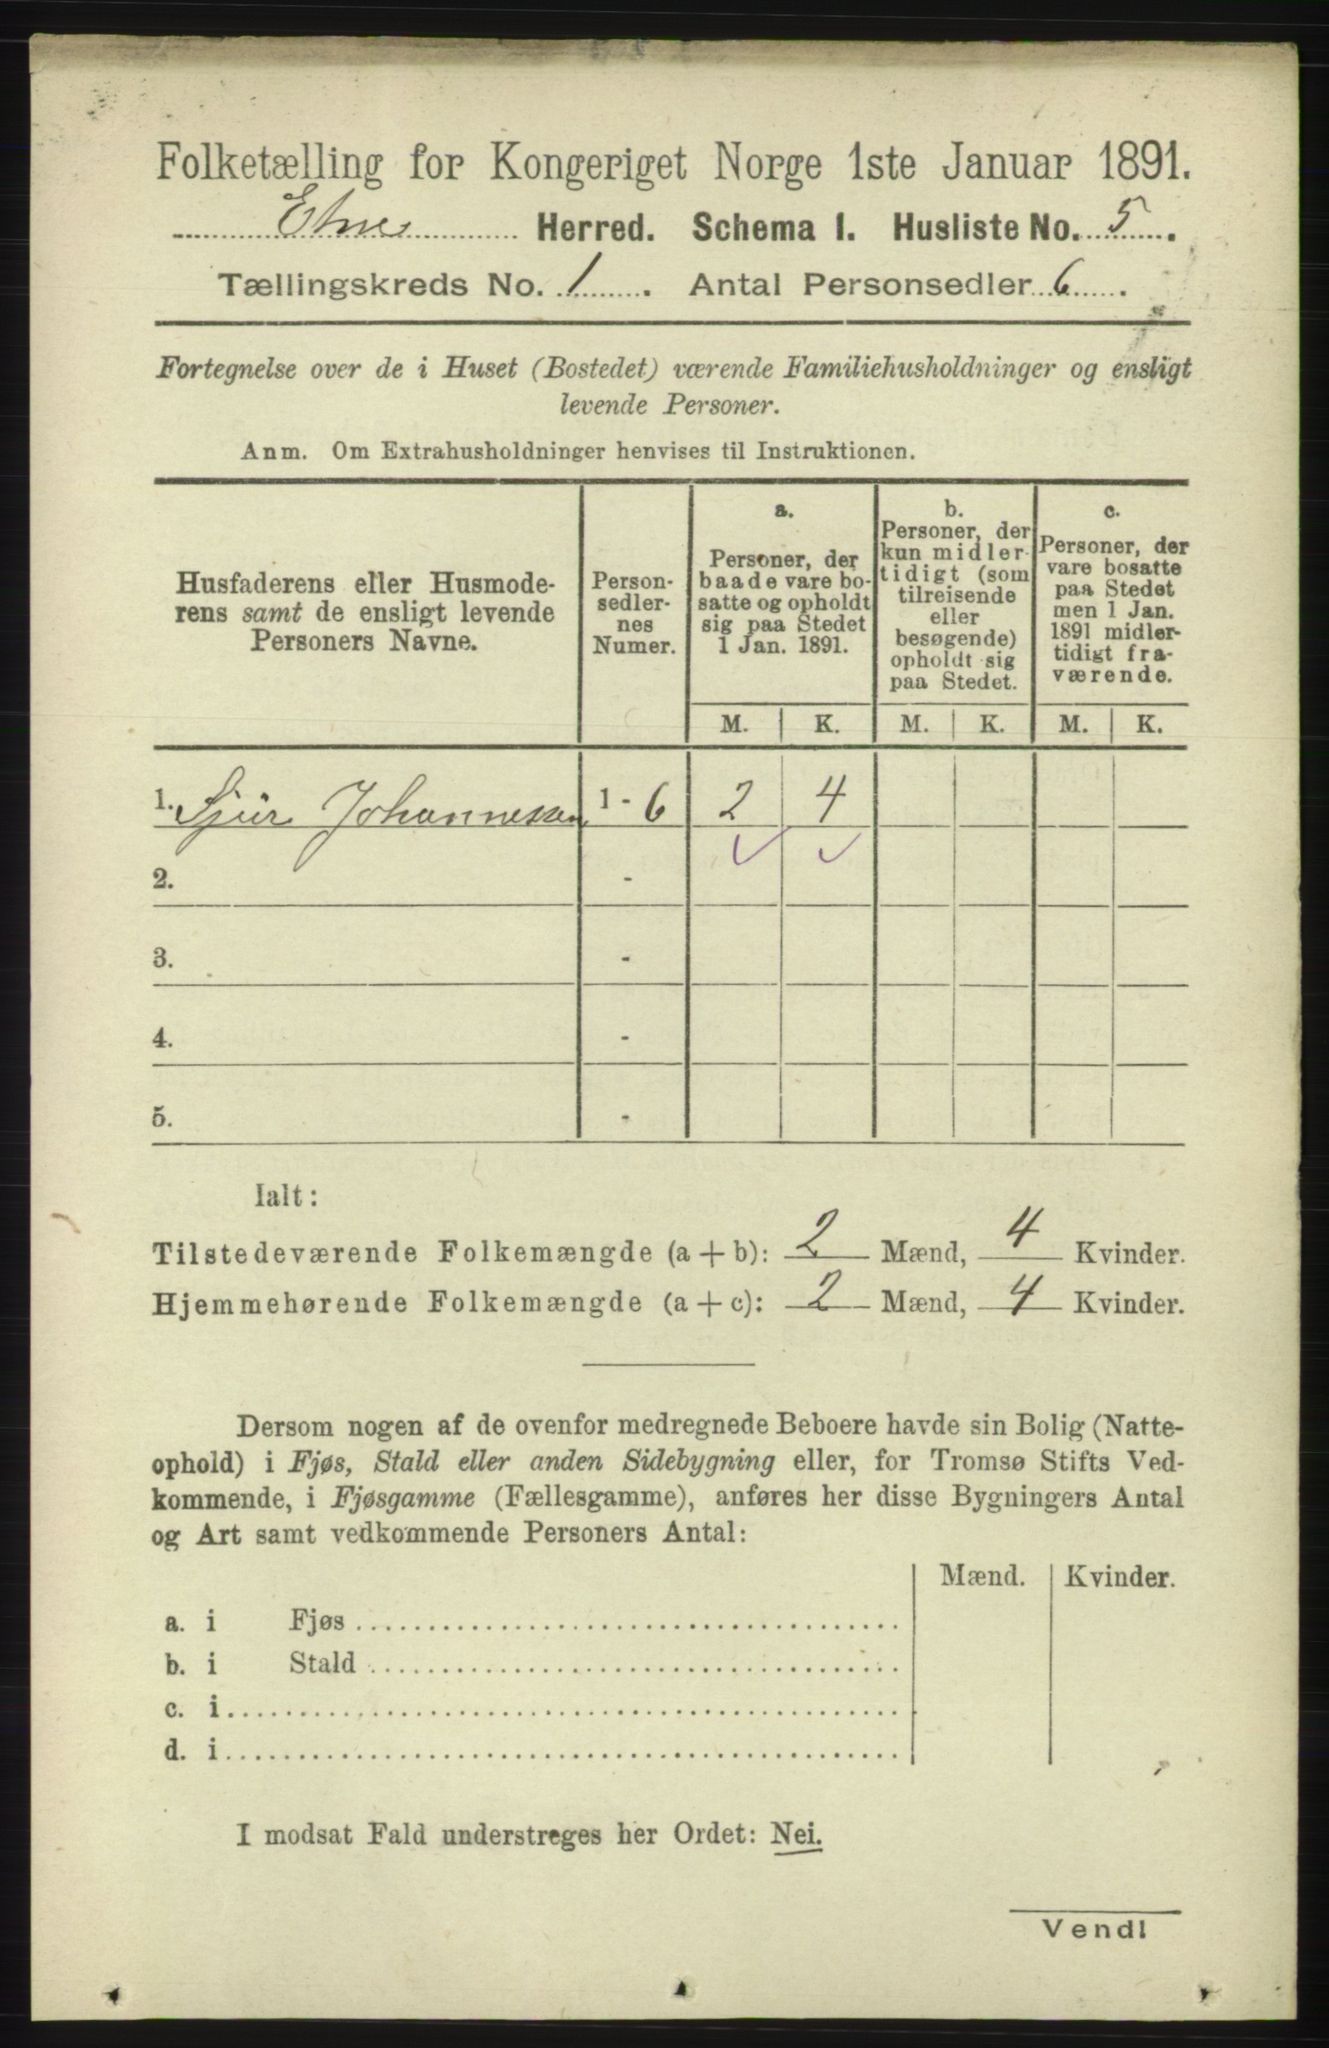 Folketælling for Kongeriget Norge 1ste Januar 1891.
Etne Herred. Schema I. Husliste No. 5.
Tællingskreds No. 1. Antal Personsedler 6.
Fortegnelse over de i Huset (Bostedet) værende Familiehusholdninger og ensligt
levende Personer.
Anm. Om Extrahusholdninger henvises til Instruktionen.
Husfaderens eller Husmode-
rens samt de ensligt levende
Personers Navne.
Person-
sedler-
nes
Numer.
a.
Personer, der
baade vare bo-
satte og opholdt
sig paa Stedet
1 Jan. 1891.
b.
Personer, der
kun midler-
tidigt (som
tilreisende
eller
besøgende)
opholdt sig
paa Stedet.
c.
Personer, der
vare bosatte
paa Stedet
men 1 Jan.
1891 midler-
tidigt fra-
værende.
M. K. M. K. M. K.
1. Sjur Johannessen 1 - 6 2 4
2. -
3. -
4. -
5. -
Ialt:
Tilstedeværende Folkemængde (a + b): 2 Mænd, 4 Kvinder.
Hjemmehørende Folkemængde (a + c): 2 Mænd, 4 Kvinder.
Dersom nogen af de ovenfor medregnede Beboere havde sin Bolig (Natte-
ophold) i Fjøs, Stald eller anden Sidebygning eller, for Tromsø Stifts Ved-
kommende, i Fjøsgamme (Fællesgamme), anføres her disse Bygningers Antal
og Art samt vedkommende Personers Antal:
Mænd. Kvinder.
a. i Fjøs
b. i Stald
c. i
d. i
I modsat Fald understreges her Ordet: Nei.
Vendl